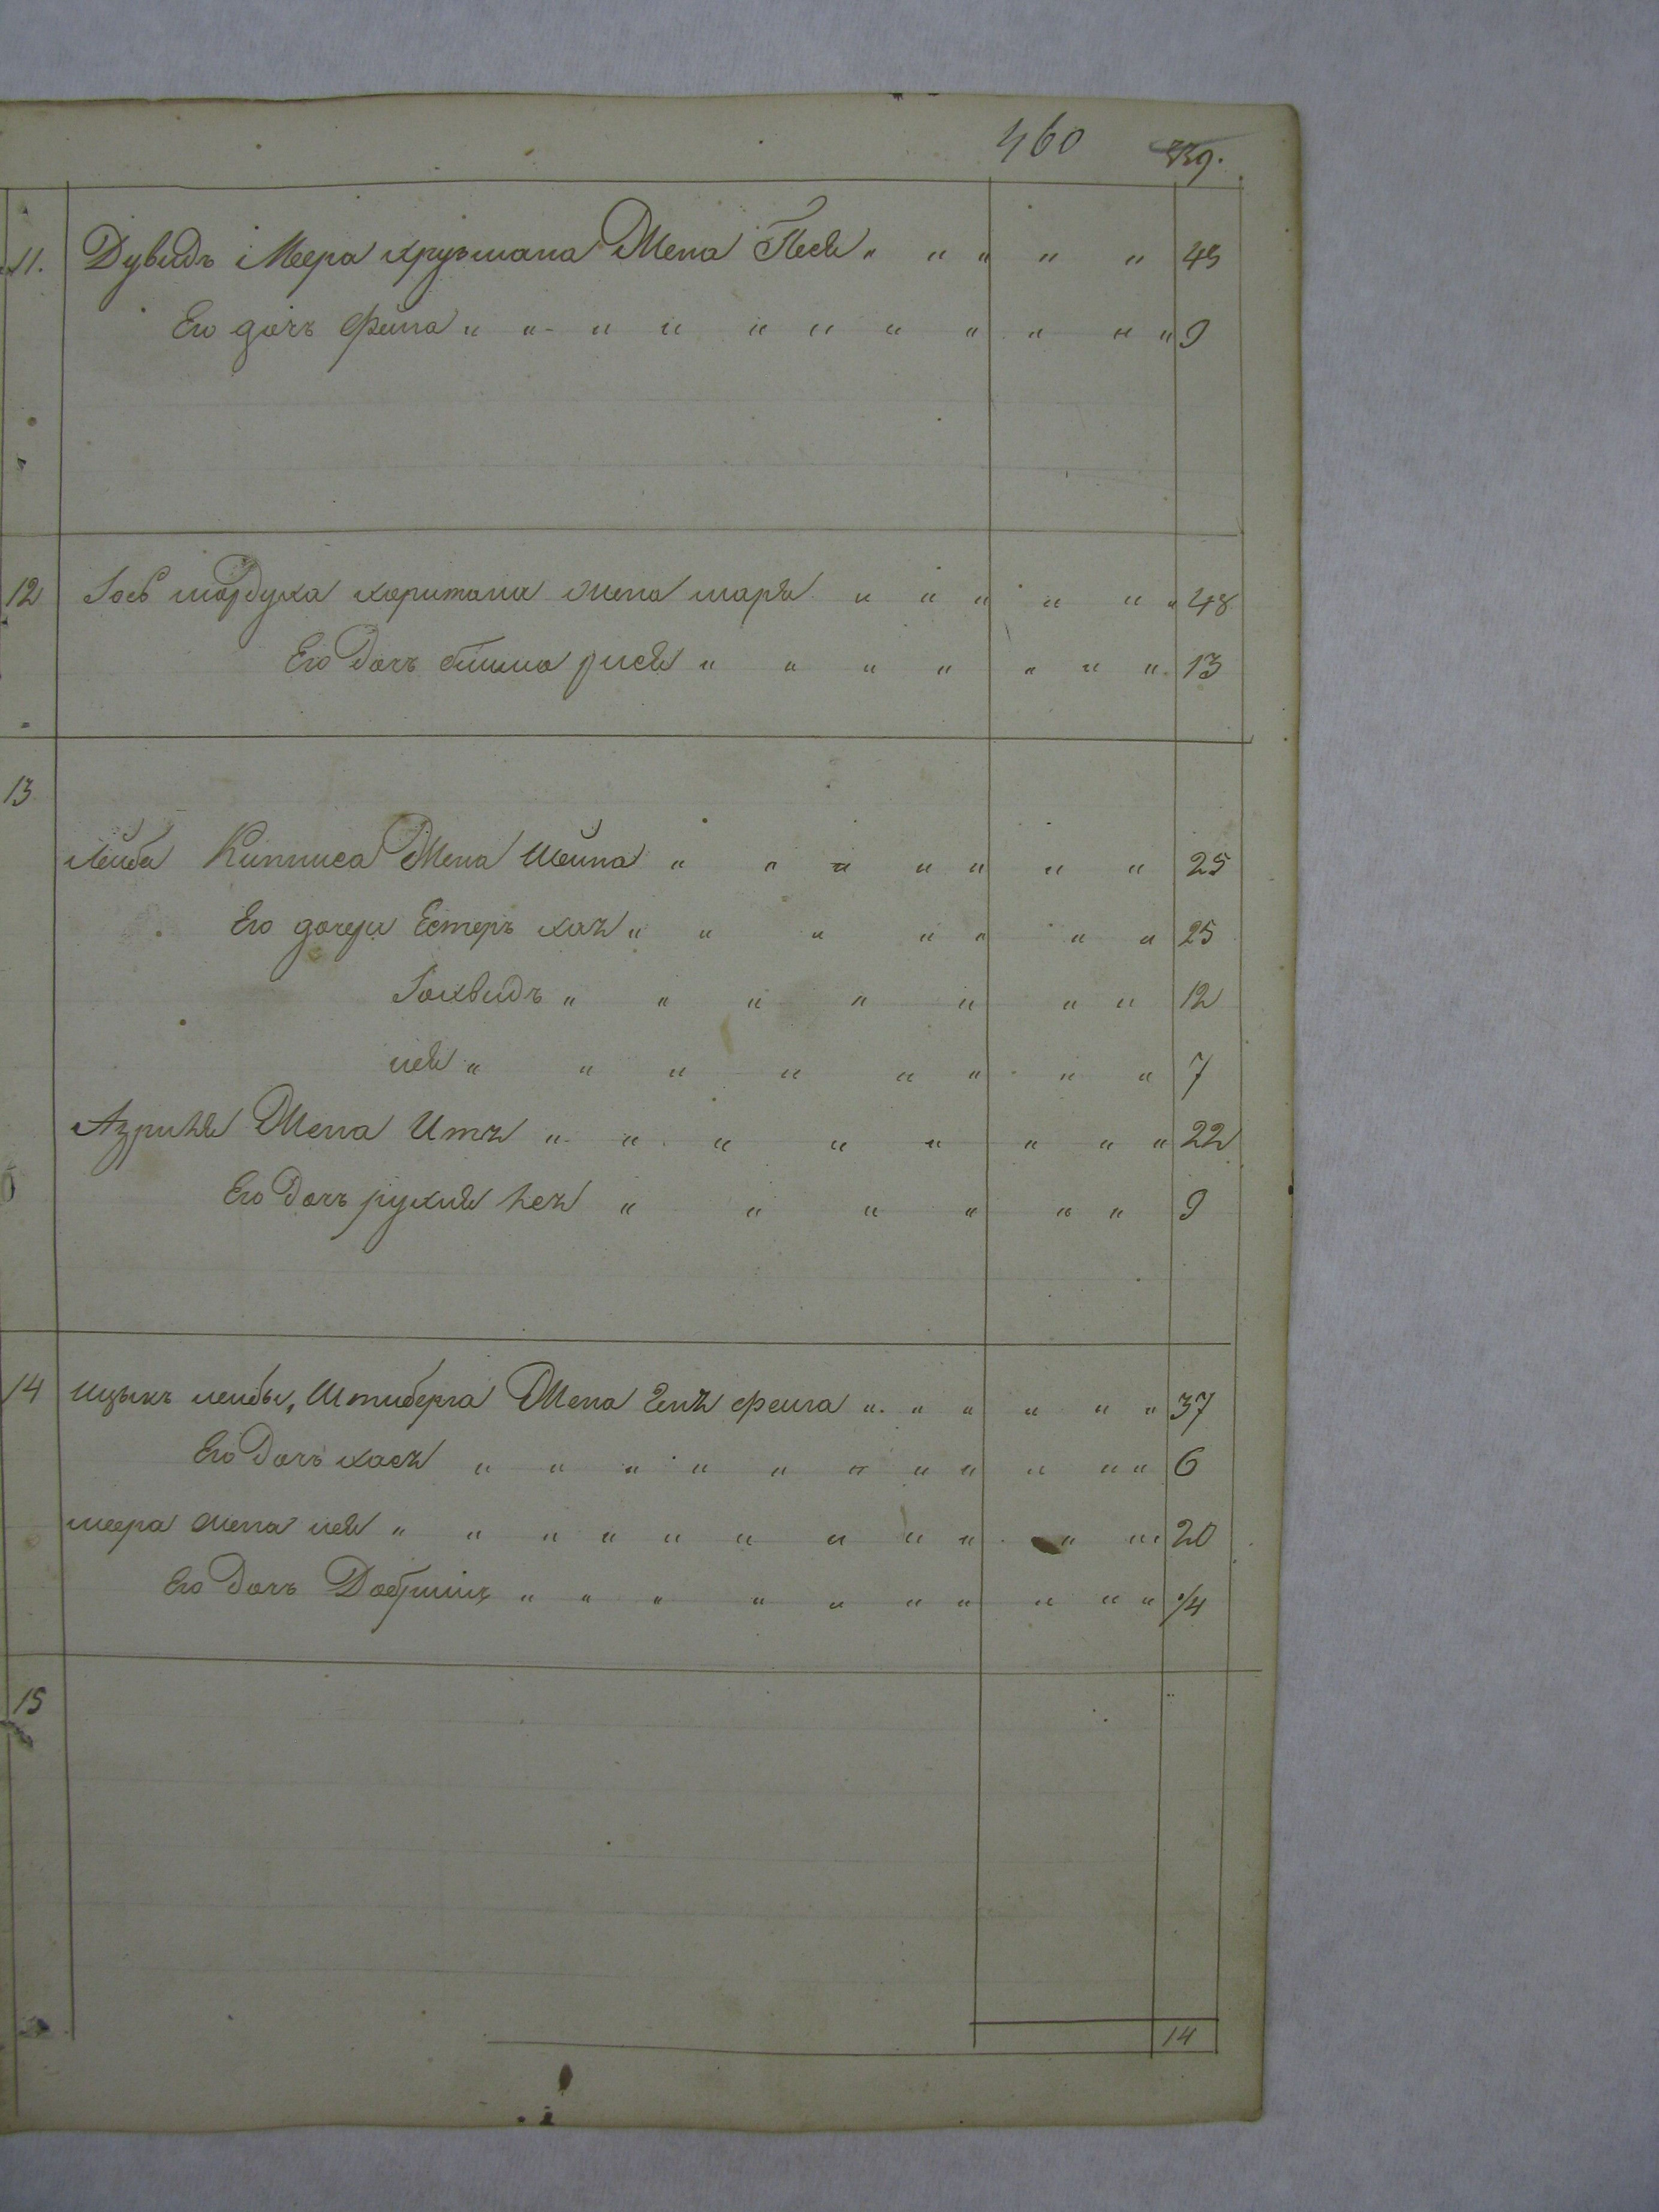 460 739.
11. Дувидъ Меера крузмана Жена Песя " " " " " 45
Его дочь Фейга " " " " " " " " " " " 9
12 Іось мордука хоритана жена марѣя " " " " " " 48
Его Дочь рися " " " " " " " 13
13
Лейба Кипниса Жена Шейна " " " " " " " 25
Его дочери Естеръ хая " " " " " " " 25
Іохвидъ " " " " " " " 12
лея " " " " " " " " 7
Азрилъ Жена Ита " " " " " " " " 22
Его Дочь рухля " " " " " " 9
14 Ицыкъ лейбы, Штиберга Жена фейга " " " " " " 37
Его Дочь хася " " " " " " " " " " " 6
меера жена лея " " " " " " " " " " " 20
Его Дочь " " " " " " " " " " 1/4
15
14